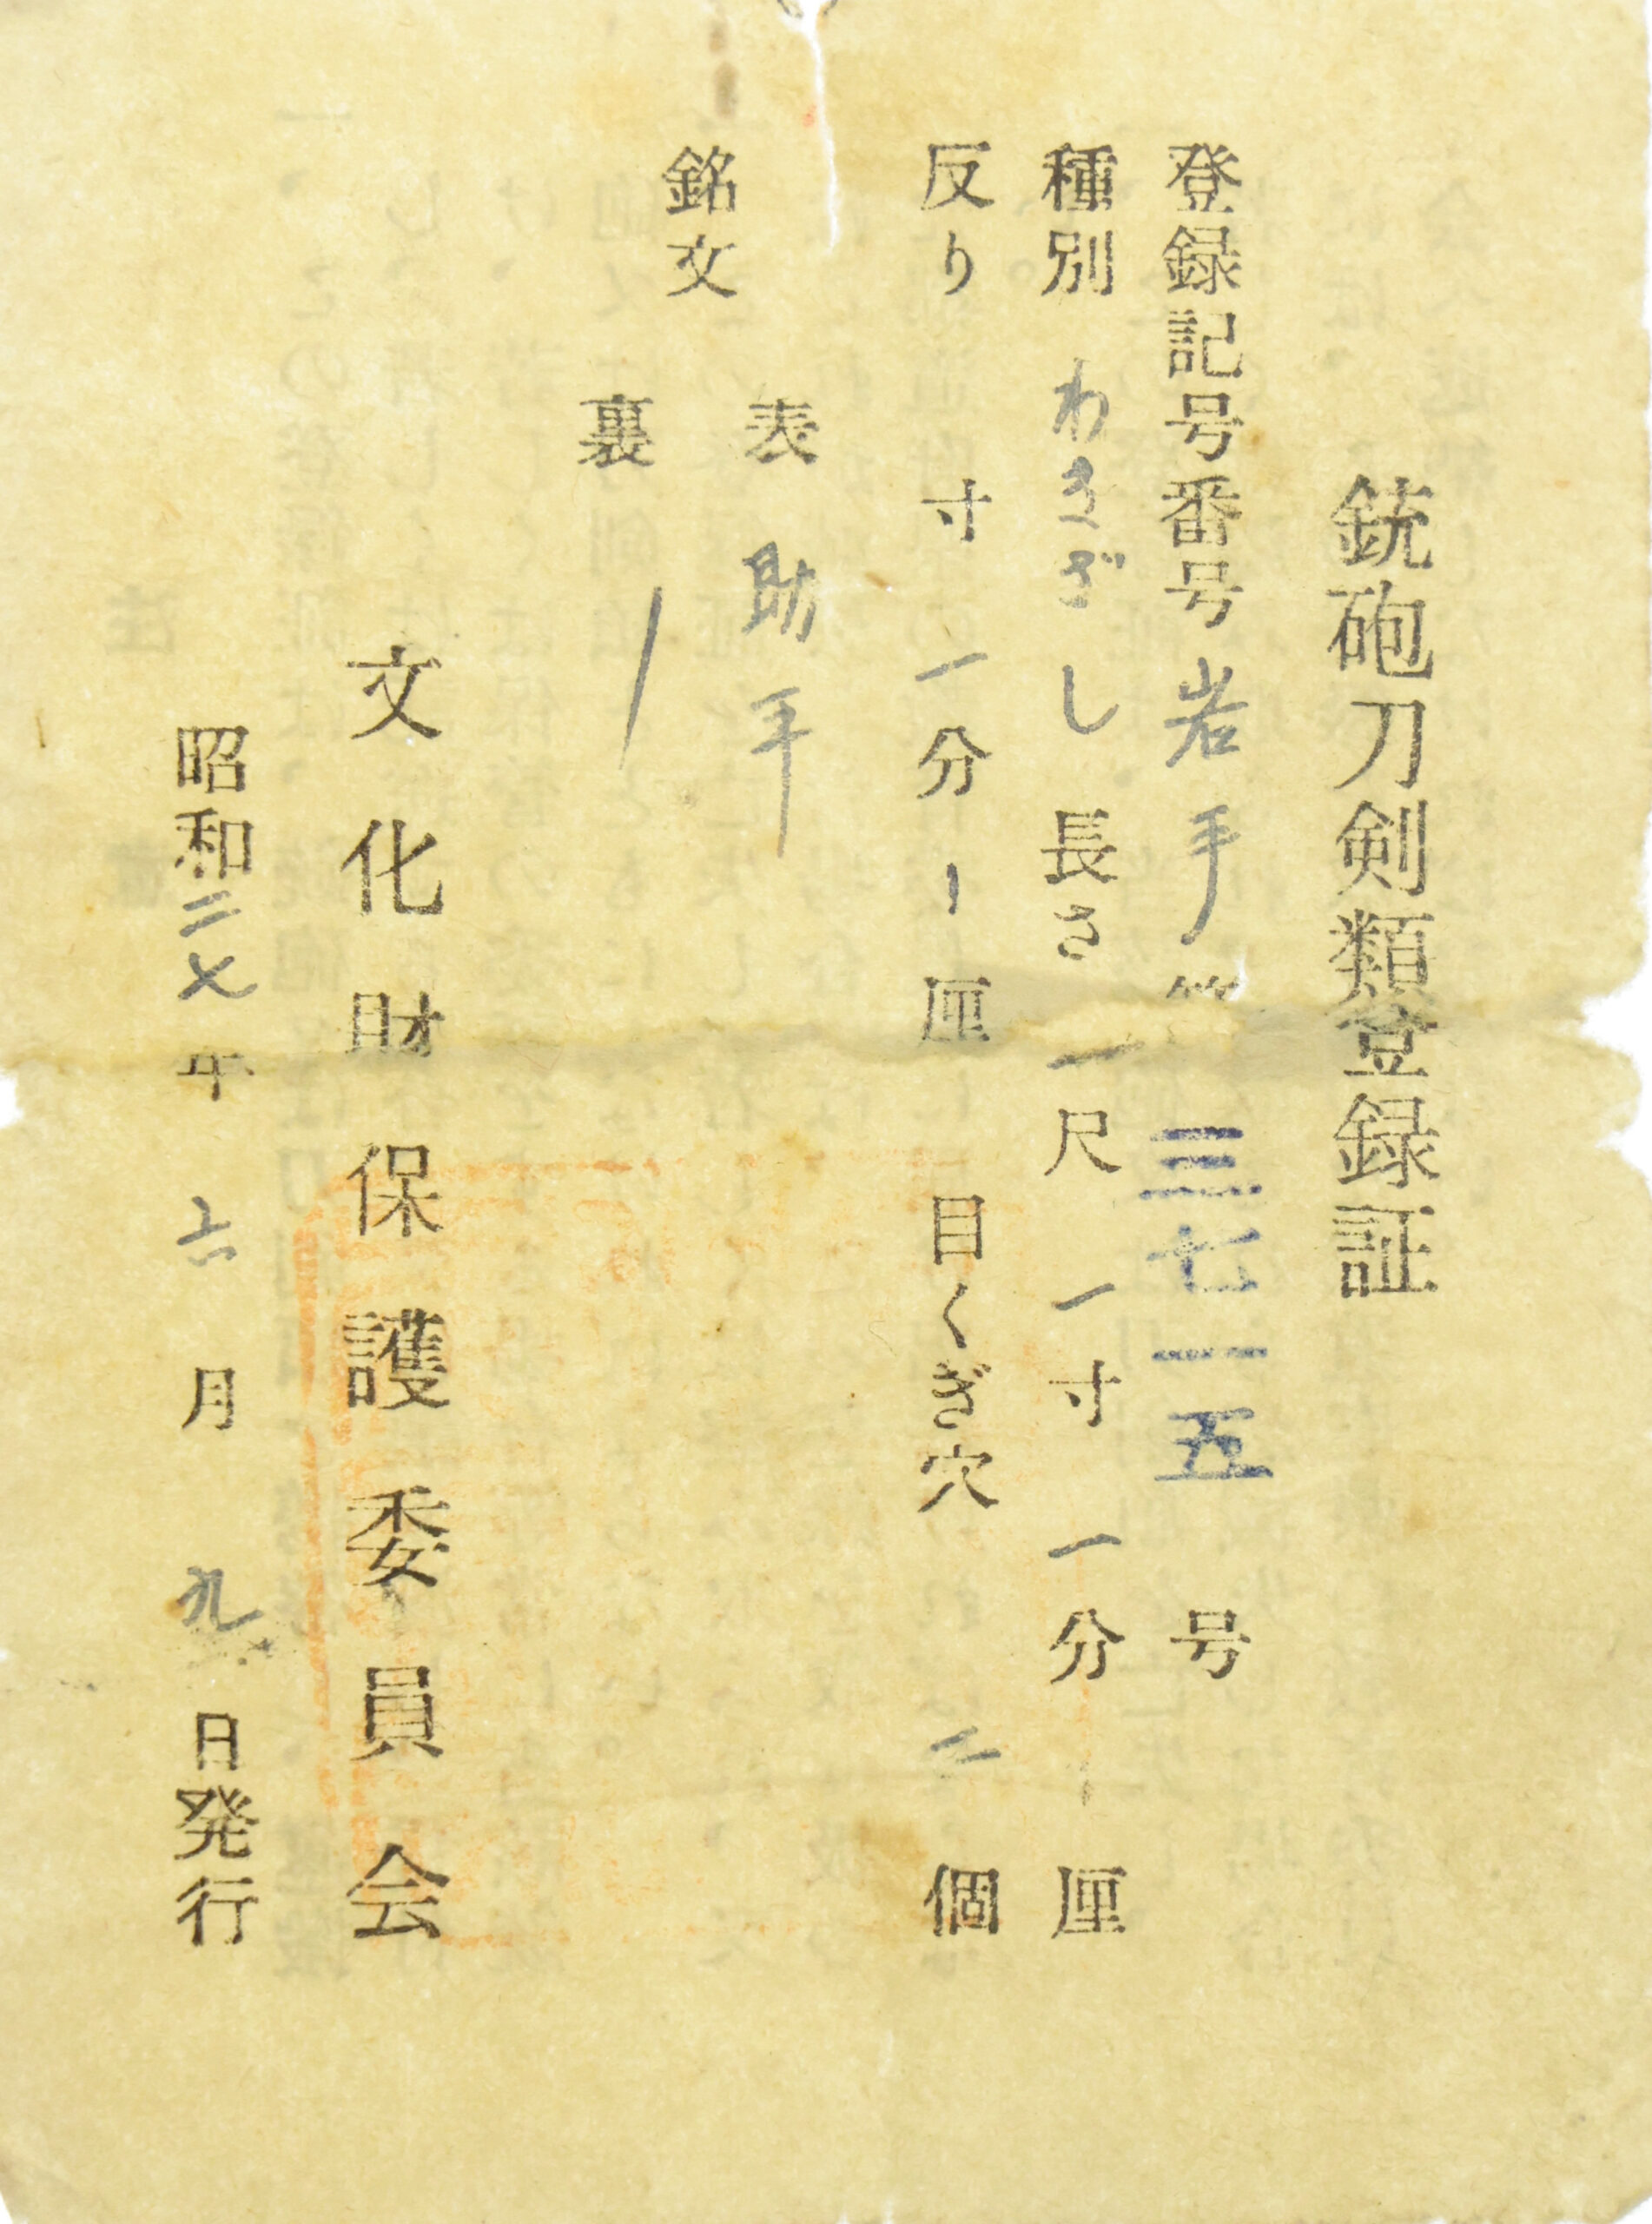 銃砲刀剣類登録証
登録記号番号 岩手 第 三七一五 号
種別 わきざし 長さ 一尺 一寸 一分 ー 厘
反り 寸 一分 ー 厘 目くぎ穴 二 個
銘文
表 助平
裏 ー
文化財保護委員会
昭和二七年 六月 九日発行